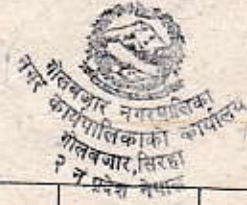 गोलबजार नगरपालिका
नगर कार्यपालिकाको कार्यालय
गोलबजार, सिरहा
२ न प्रदेश नेपाल